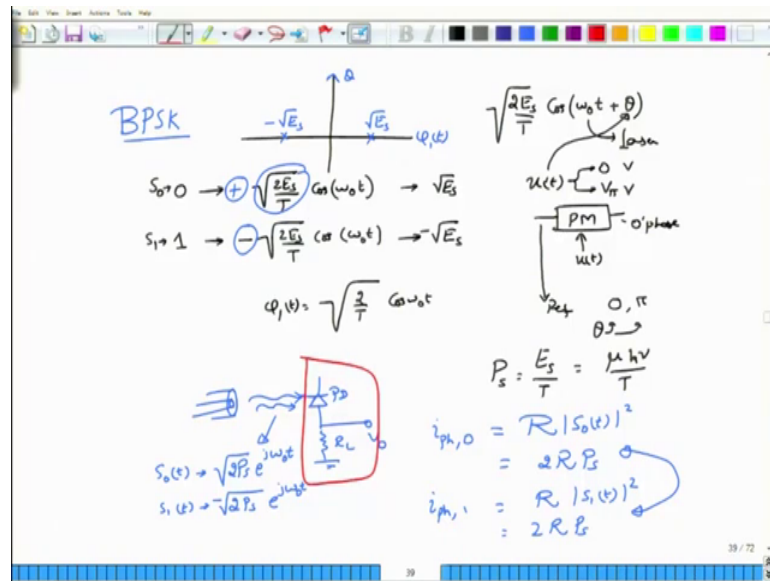 File View Insert Actions Tools Help
B I
BPSK
Q
-√Es √Es φ₁(t)
S₀→0 → + √(2Es/T) Cos(ω₀t) → √Es
S₁→1 → - √(2Es/T) Cos(ω₀t) → -√Es
φ₁(t) = √(2/T) Cosω₀t
√(2Es/T) Cos(ω₀t + θ)
Laser
u(t) 0 V
Vπ V
PM 0' phase
u(t)
Ref 0, π
θ
Ps = Es/T = μhν/T
PD
R_L V₀
S₀(t) → √2Ps e^jω₀t
S₁(t) → -√2Ps e^jω₀t
i_ph,0 = R |S₀(t)|²
= 2RPs
i_ph,1 = R |S₁(t)|²
= 2RPs
39 / 72
39